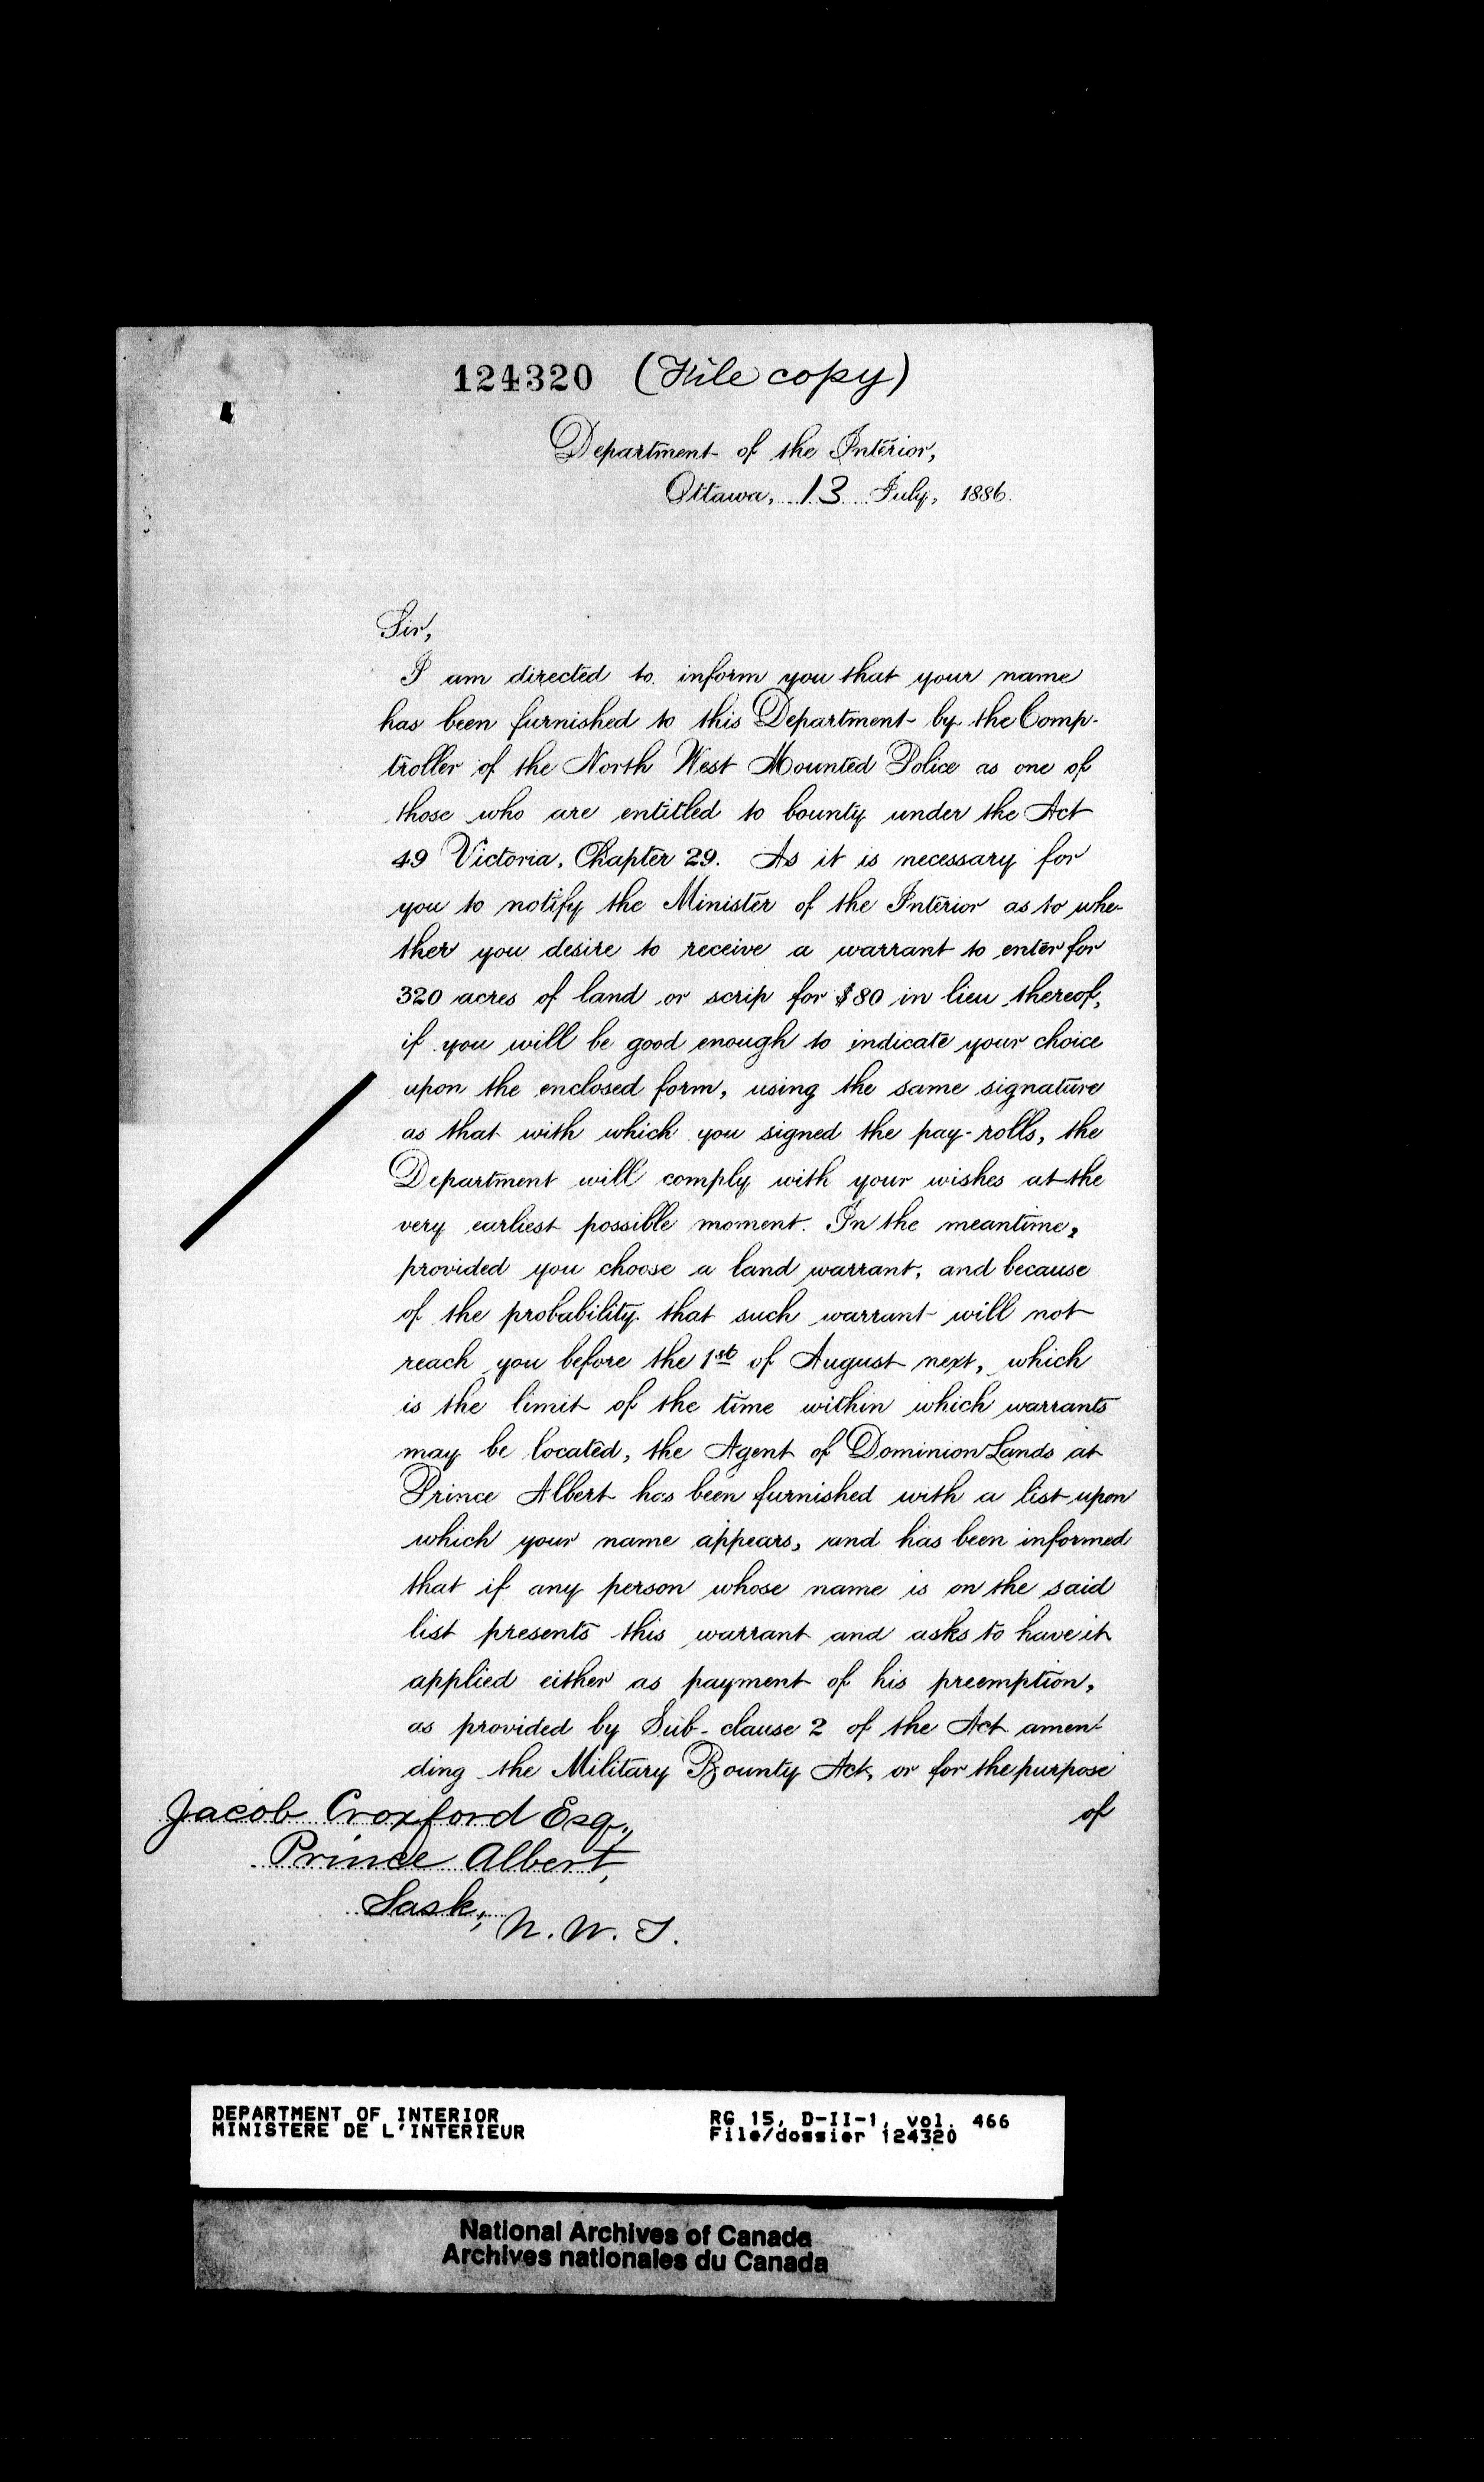 124320 (File copy)
Department of the Interior,
Ottawa, 13 July, 1886.
Sir,
I am directed to inform you that your name
has been furnished to this Department by the Comp-
troller of the North West Mounted Police as one of
those who are entitled to bounty under the Act
49 Victoria, Chapter 29. As it is necessary for
you to notify the Minister of the Interior as to whe-
ther you desire to receive a warrant to enter for
320 acres of land or scrip for $80 in lieu thereof,
if you will be good enough to indicate your choice
upon the enclosed form, using the same signature
as that with which you signed the pay-rolls, the
Department will comply with your wishes at the
very earliest possible moment. In the meantime,
provided you choose a land warrant, and because
of the probability that such warrant will not
reach you before the 1st of August next, which
is the limit of the time within which warrants
may be located, the Agent of Dominion Lands at
Prince Albert has been furnished with a list upon
which your name appears, and has been informed
that if any person whose name is on the said
list presents this warrant and asks to have it
applied either as payment of his preemption,
as provided by Sub-clause 2 of the Act amen-
ding the Military Bounty Act, or for the purpose
of
Jacob Croxford Esq.,
Prince Albert,
Sask., N.W.T.
DEPARTMENT OF INTERIOR
MINISTERE DE L'INTERIEUR
RG 15, D-II-1, vol. 466
File/dossier 124320
National Archives of Canada
Archives nationales du Canada